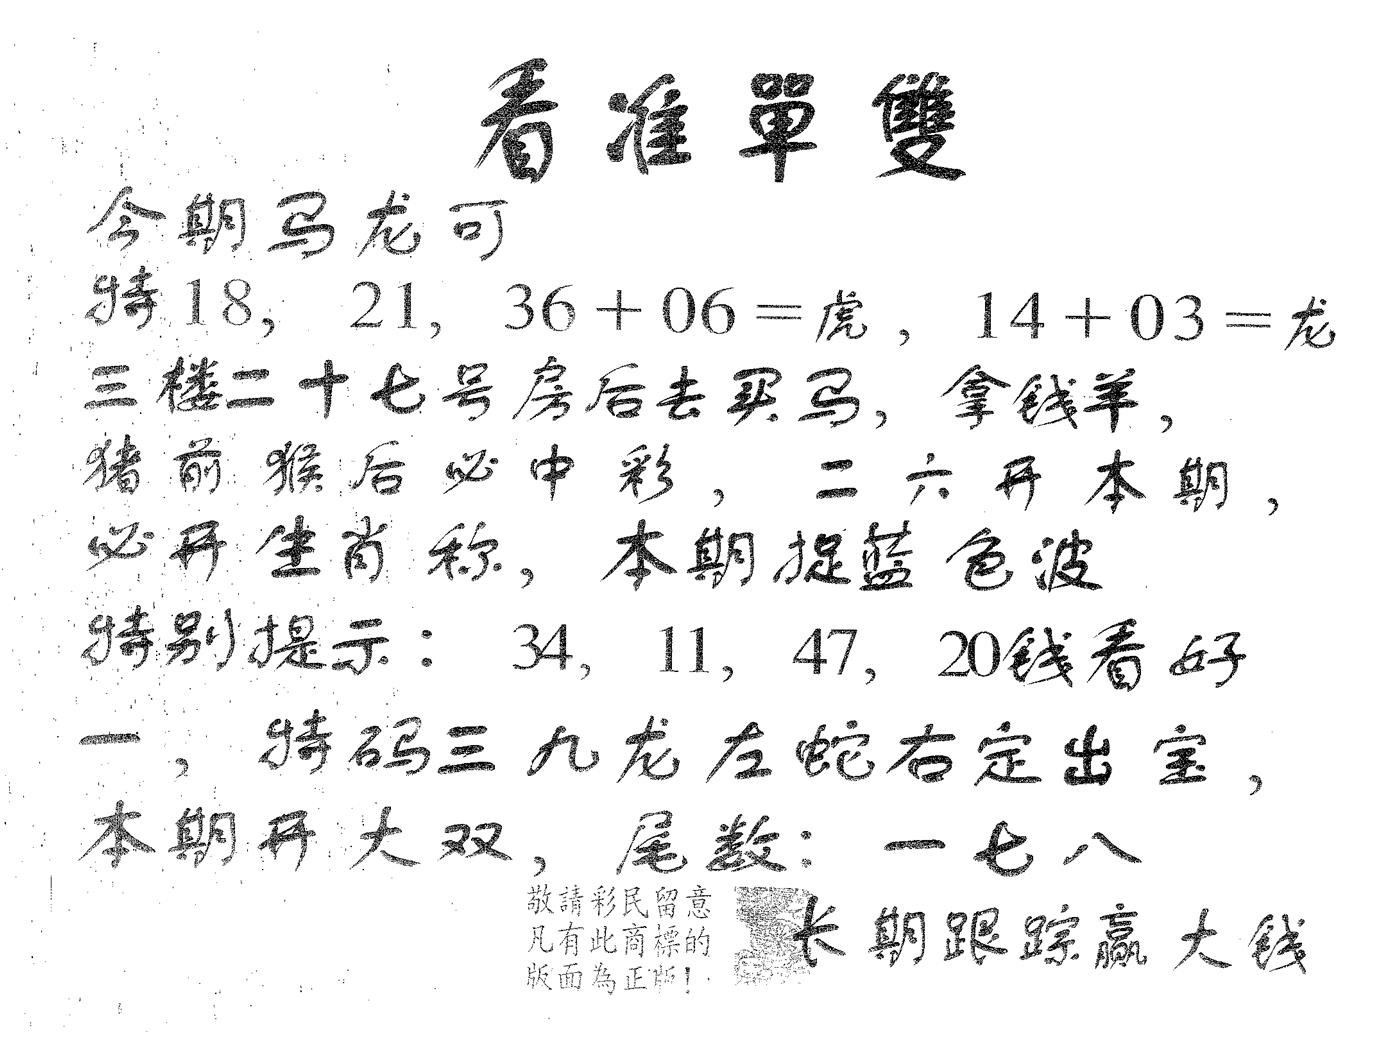 看准單雙
今期马龙可
特18， 21， 36＋06＝虎，14＋03＝龙
三楼二十七号房后去买马，拿钱羊，
猪前猴后必中彩，二六开本期，
必开生肖称，本期捉蓝色波
特别提示：34，11，47，20钱看好
一，特码三九龙左蛇右定出宝，
本期开大双，尾数：一七八
敬請彩民留意
凡有此商標的
版面為正版！
长期跟踪赢大钱